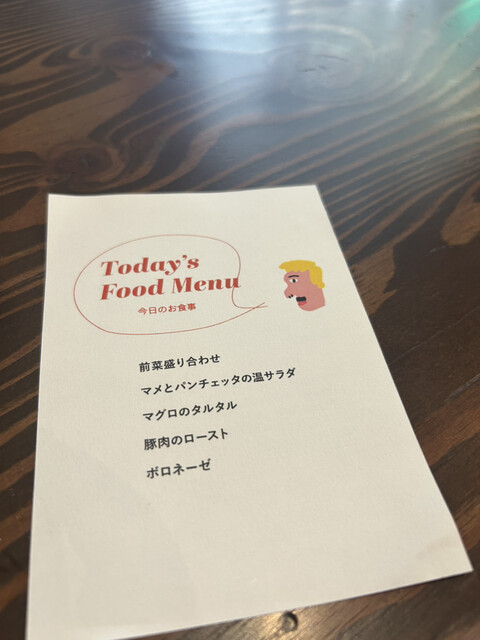 Today's
Food Menu
今日のお食事
前菜盛り合わせ
マメとパンチェッタの温サラダ
マグロのタルタル
豚肉のロースト
ボロネーゼ